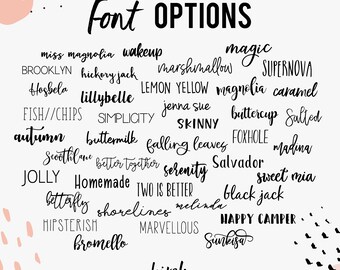 Font OPTIONS
miss magnolia wakeup magic
BROOKLYN hickory jack marshmallow SUPERNOVA
Hosbela lillybelle LEMON YELLOW magnolia caramel
FISH//CHIPS SIMPLICITY jenna sue SKINNY buttercup Salted
autumn buttermilk falling leaves FOXHOLE madina
Scottlane better together serenity Salvador
JOLLY Homemade TWO IS BETTER sweet mia
butterfly shorelines melinda black jack
HIPSTERISM MARVELLOUS HAPPY CAMPER
bromello Sunkisa